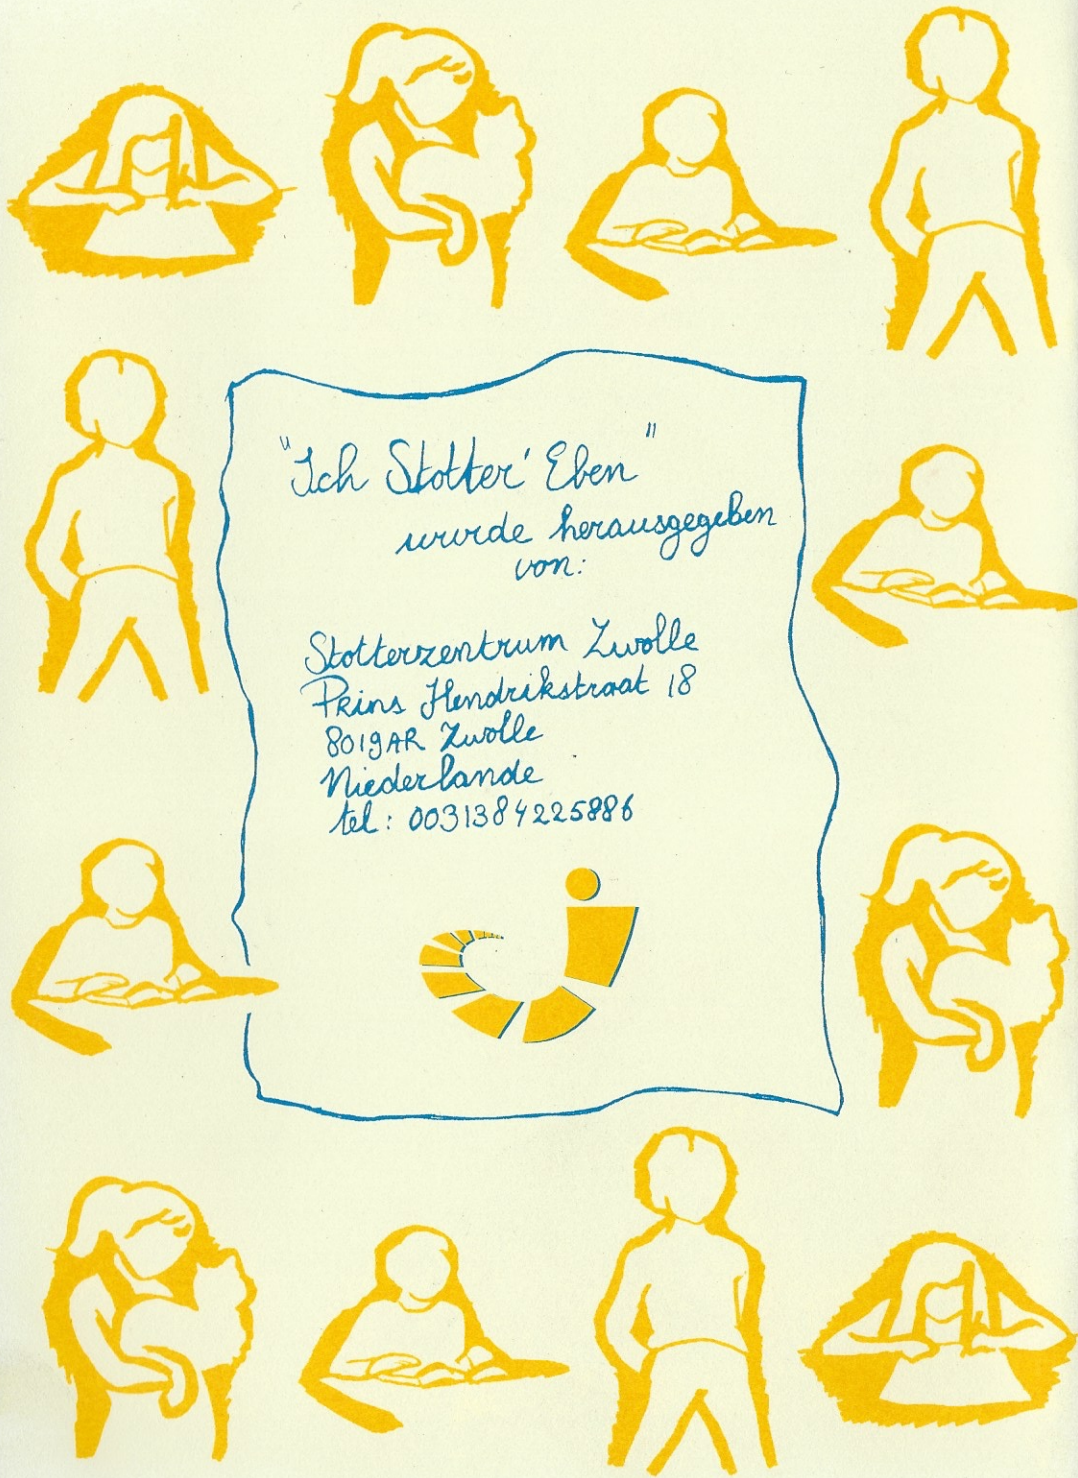 "Ich Stotter' Eben"
wurde herausgegeben
von:
Stotterzentrum Zwolle
Prins Hendrikstraat 18
8019AR Zwolle
Niederlande
tel: 0031384225886